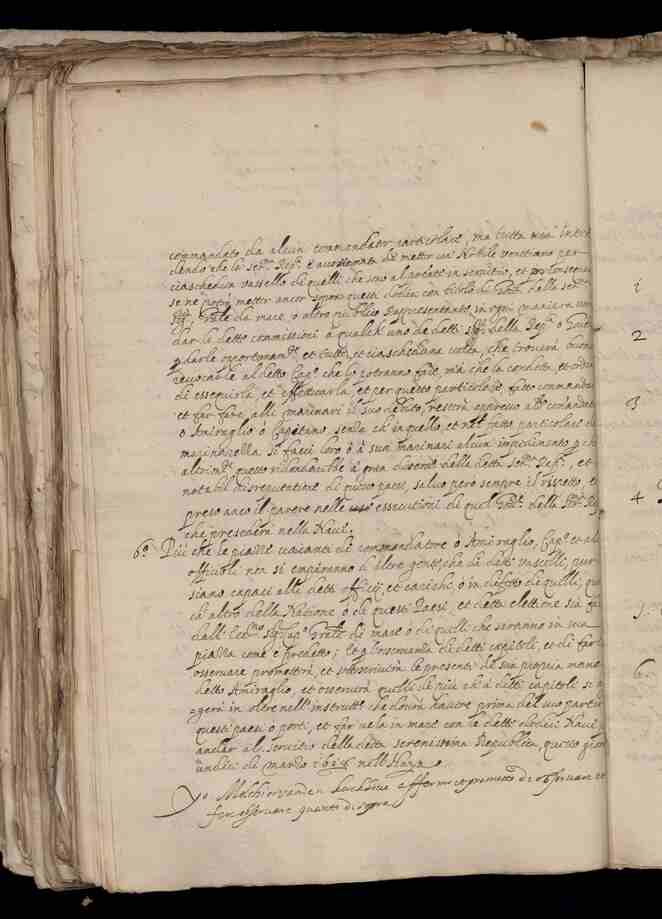 commandato da alcun commandator particolare, ma tutta uia inten
dendo che la ser.ma Rep.ca è accostumata di metter un Nobile venetiano per
ciaschedun vassello di quelli che sono al armata in seruitio, et
se ne potrà metter ancor sopra questi dodici con titolo di Gov.r della ser.ma
Gn̄ale da mare ò altro publico Rapresentante, in ogni maniera
dar le dette commissioni à qualch'uno de detti della Rep.ca o
darle oportunam.te et tutte, et ciascheduna volta, che trouerà buono
reuocarle al detto Cap.o che lo potranno fare, mà che la condotta, et ordine
di esseguirla et effettuarla, et per questo particolare fatto commandar
et far fare alli marinari il suo debito, resterà appresso commandator
ò Amiraglio ò Capitano, senza ch'in quello, et nel fatto particolare di
marinarezza si facci loro ò à suoi marinari alcun impedimento
altrim.te questo ridondarebbe à poca discrettione della detta ser.ma Rep.ca, et
notabil disreputatione di questo paese, saluo però sempre il rispetto, et
preso anco il parere nelle essecutioni di quel Gov.r della Ser.ma Rep.ca
che presederà nella Naue.
6.o Più che le piazze uacanti di commandatore ò Amiraglio, Cap.o et altri
officiali non si empiranno d'altre genti che di detti vascelli, pur
siano capaci alli detti officij, et carichi, ò in difetto di quelli, qual
ch'altro della Natione ò di questi Paesi, et detta elettione sia fatta
dall'Ecc.mo Sig.r Cap.o Gn̄ale di mare ò di quelli che seranno in sua
piazza come è predetto; Et p l'osseruanza di detti capitoli, et di farli
osseruare prometterà, et sottoscriuerà le presenti de sua propria mano
detto Amiraglio, et osseruerà quelli di più ch'à detti capitoli si
ggerà in oltre nell'instrutt.e che dourà hauere prima del suo partir
questi paesi ò porti, et far uela in mare con le dette dodici Naui
andar al seruitio della detta serenissima Republica, questo giorno
undeci di marzo 1618 nell'Haya.
Yo Melchior vanden affermo et prometto di osseruare et
far osseruare quanto di sopra
i
2
3
4
6